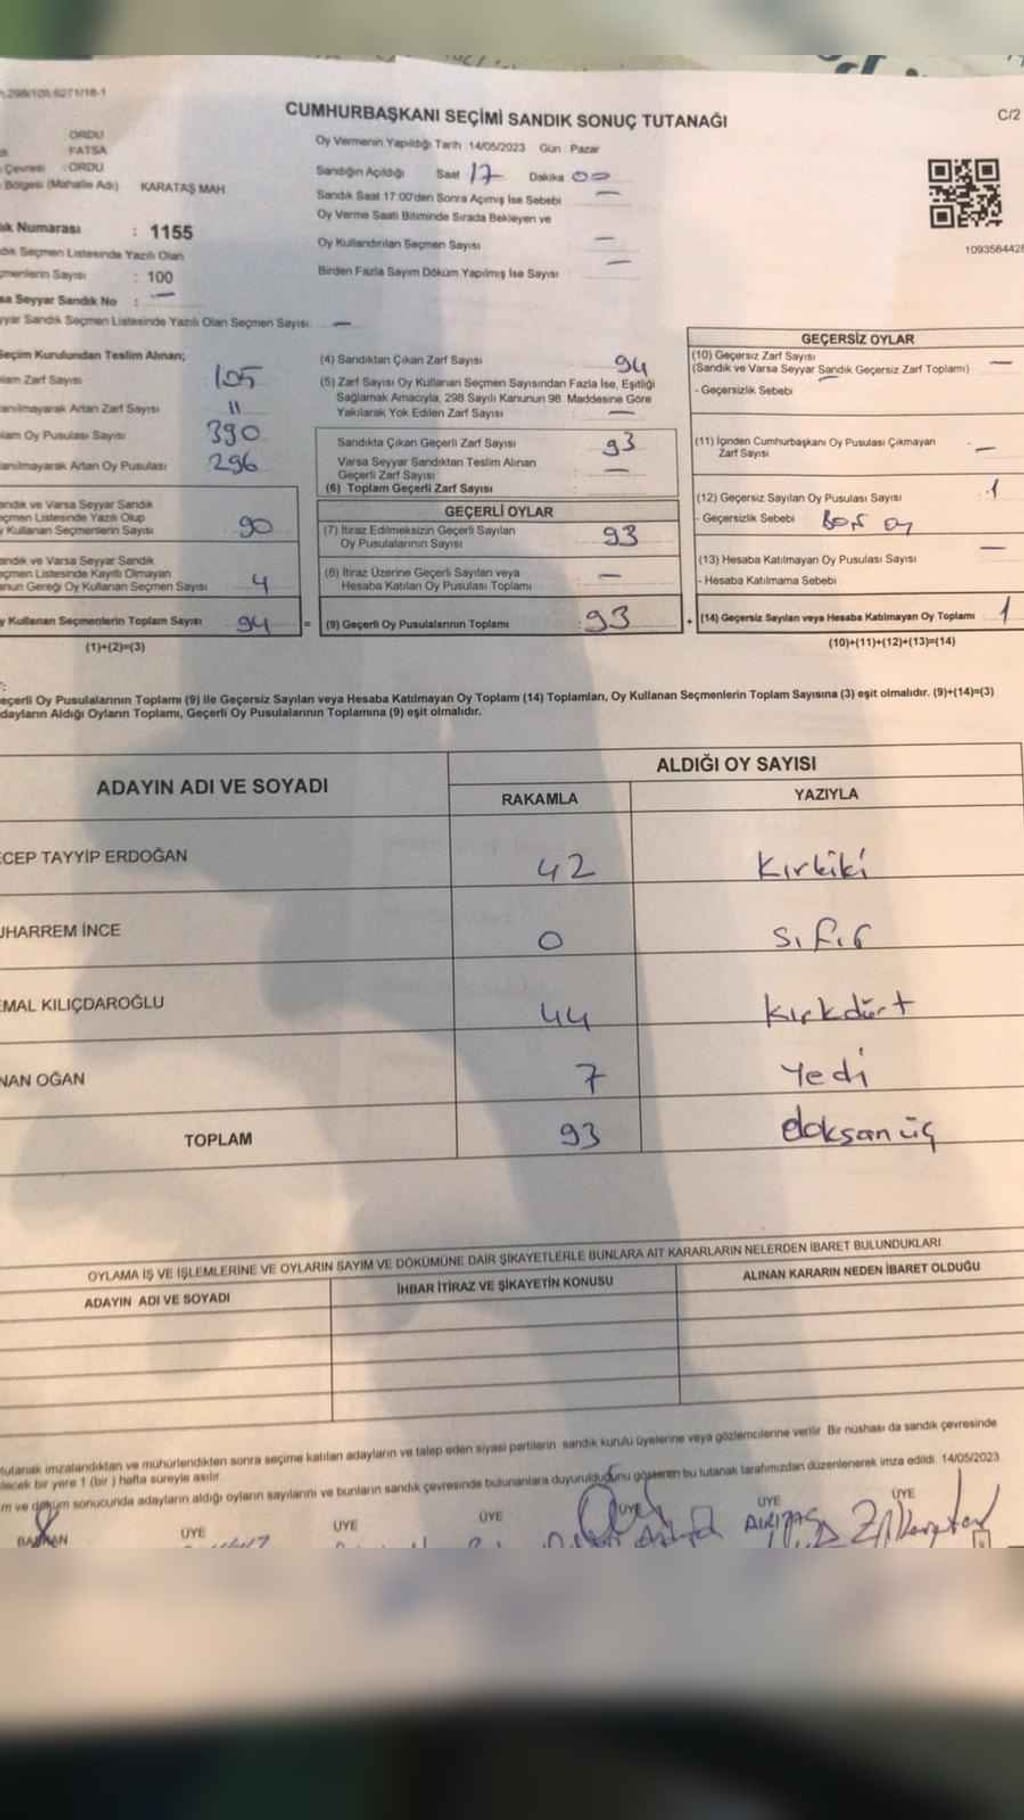 CUMHURBAŞKANI SEÇİMİ SANDIK SONUÇ TUTANAĞI
C/2
ORDU
FATSA
Çevresi : ORDU
Bölgesi (Mahalle Adı) KARATAŞ MAH
Numarası : 1155
Seçmen Listesinde Yazılı Olan
Sayısı : 100
Seyyar Sandık No : —
Sandık Seçmen Listesinde Yazılı Olan Seçmen Sayısı —
Oy Vermenin Yapıldığı Tarih :14/05/2023 Gün : Pazar
Sandığın Açıldığı Saat 17 Dakika 00
Sandık Saat 17:00'den Sonra Açılmış İse Sebebi —
Oy Verme Saati Bitiminde Sırada Bekleyen ve
Oy Kullandırılan Seçmen Sayısı —
Birden Fazla Sayım Döküm Yapılmış İse Sayısı —
109356442
Seçim Kurulundan Teslim Alınan;
Zarf Sayısı 105
Artan Zarf Sayısı 11
Oy Pusulası Sayısı 390
Artan Oy Pusulası 296
ve Varsa Seyyar Sandık
Listesinde Yazılı Olup
Kullanan Seçmenlerin Sayısı 90
ve Varsa Seyyar Sandık
Listesinde Kayıtlı Olmayan
Gereği Oy Kullanan Seçmen Sayısı 4
Kullanan Seçmenlerin Toplam Sayısı 94
(1)+(2)=(3)
=
(4) Sandıktan Çıkan Zarf Sayısı 94
(5) Zarf Sayısı Oy Kullanan Seçmen Sayısından Fazla İse, Eşitliği
Sağlamak Amacıyla, 298 Sayılı Kanunun 98. Maddesine Göre
Yakılarak Yok Edilen Zarf Sayısı —
Sandıkta Çıkan Geçerli Zarf Sayısı 93
Varsa Seyyar Sandıktan Teslim Alınan
Geçerli Zarf Sayısı —
(6) Toplam Geçerli Zarf Sayısı
GEÇERLİ OYLAR
(7) İtiraz Edilmeksizin Geçerli Sayılan
Oy Pusulalarının Sayısı 93
(8) İtiraz Üzerine Geçerli Sayılan veya
Hesaba Katılan Oy Pusulası Toplamı —
(9) Geçerli Oy Pusulalarının Toplamı : 93
+
GEÇERSİZ OYLAR
(10) Geçersiz Zarf Sayısı
(Sandık ve Varsa Seyyar Sandık Geçersiz Zarf Toplamı) —
- Geçersizlik Sebebi
(11) İçinden Cumhurbaşkanı Oy Pusulası Çıkmayan
Zarf Sayısı —
(12) Geçersiz Sayılan Oy Pusulası Sayısı 1
- Geçersizlik Sebebi Boş oy
(13) Hesaba Katılmayan Oy Pusulası Sayısı —
- Hesaba Katılmama Sebebi
(14) Geçersiz Sayılan veya Hesaba Katılmayan Oy Toplamı 1
(10)+(11)+(12)+(13)=(14)
Oy Pusulalarının Toplamı (9) ile Geçersiz Sayılan veya Hesaba Katılmayan Oy Toplamı (14) Toplamları, Oy Kullanan Seçmenlerin Toplam Sayısına (3) eşit olmalıdır. (9)+(14)=(3)
Aldığı Oyların Toplamı, Geçerli Oy Pusulalarının Toplamına (9) eşit olmalıdır.
ADAYIN ADI VE SOYADI
ALDIĞI OY SAYISI
RAKAMLA YAZIYLA
CEP TAYYİP ERDOĞAN 42 Kırkiki
HARREM İNCE 0 sıfır
MAL KILIÇDAROĞLU 44 kırkdört
NAN OĞAN 7 Yedi
TOPLAM 93 doksanüç
OYLAMA İŞ VE İŞLEMLERİNE VE OYLARIN SAYIM VE DÖKÜMÜNE DAİR ŞİKAYETLERLE BUNLARA AİT KARARLARIN NELERDEN İBARET BULUNDUKLARI
ADAYIN ADI VE SOYADI İHBAR İTİRAZ VE ŞİKAYETİN KONUSU ALINAN KARARIN NEDEN İBARET OLDUĞU
tutanak imzalandıktan ve mühürlendikten sonra seçime katılan adayların ve talep eden siyasi partilerin sandık kurulu üyelerine veya gözlemcilerine verilir. Bir nüshası da sandık çevresinde
bir yere 1 (bir ) hafta süreyle asılır.
ve döküm sonucunda adayların aldığı oyların sayılarını ve bunların sandık çevresinde bulunanlara duyurulduğunu gösteren bu tutanak tarafımızdan düzenlenerek imza edildi. 14/05/2023
BAŞKAN ÜYE ÜYE ÜYE ÜYE ÜYE ÜYE